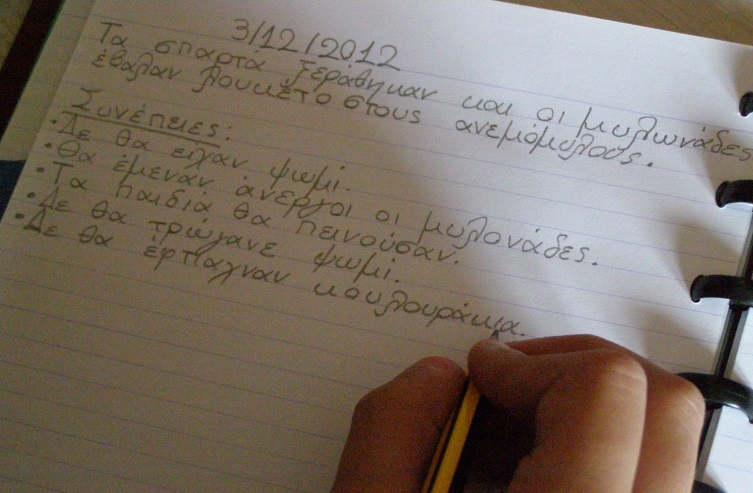 3/12/2012
Τα σπαρτα ξεράθηκαν και οι μυλωνάδες
έβαλαν λουκέτο στους ανεμόμυλους.
Συνέπειες:
• Δε θα είχαν ψωμί.
• Θα έμεναν άνεργοι οι μυλονάδες.
• Τα παιδιά θα πεινούσαν.
• Δε θα τρώγανε ψωμι.
• Δε θα έφτιαχναν κουλουράκια.